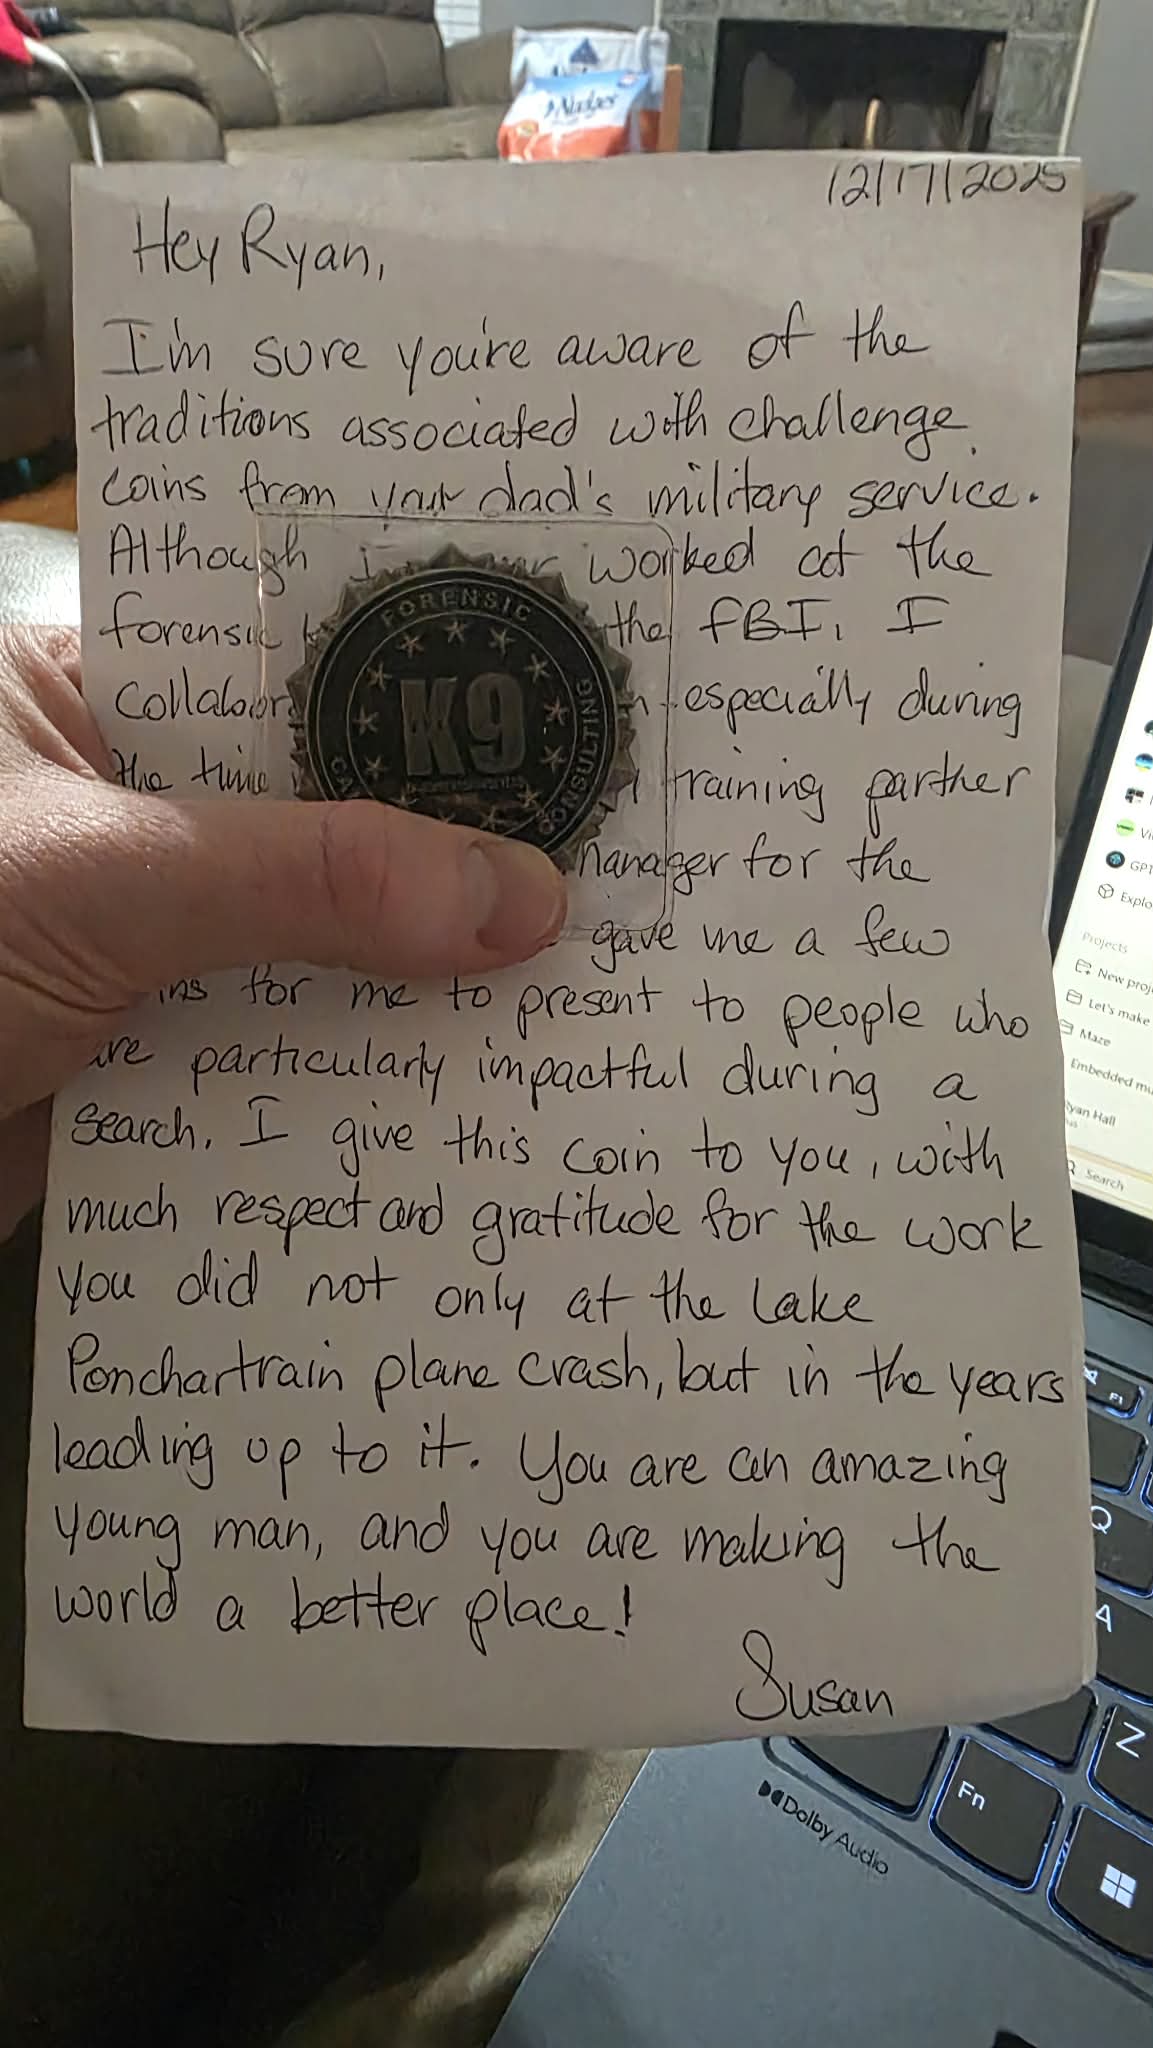 Nudges
12/17/2025
Hey Ryan,
I'm sure you're aware of the
traditions associated with challenge
coins from your dad's military service.
Although I worked at the
forensic the FBI, I
especially during
the time training partner
manager for the
gave me a few
for me to present to people who
are particularly impactful during a
search. I give this coin to you, with
much respect and gratitude for the work
you did not only at the Lake
Ponchartrain plane crash, but in the years
leading up to it. You are an amazing
young man, and you are making the
world a better place!
Susan
FORENSIC
K9
CONSULTING
GPT
Explo
Projects
New proj
Let's make
Maze
Embedded mu
Ryan Hall
Search
F1
Q
A
Z
Fn
Dolby Audio